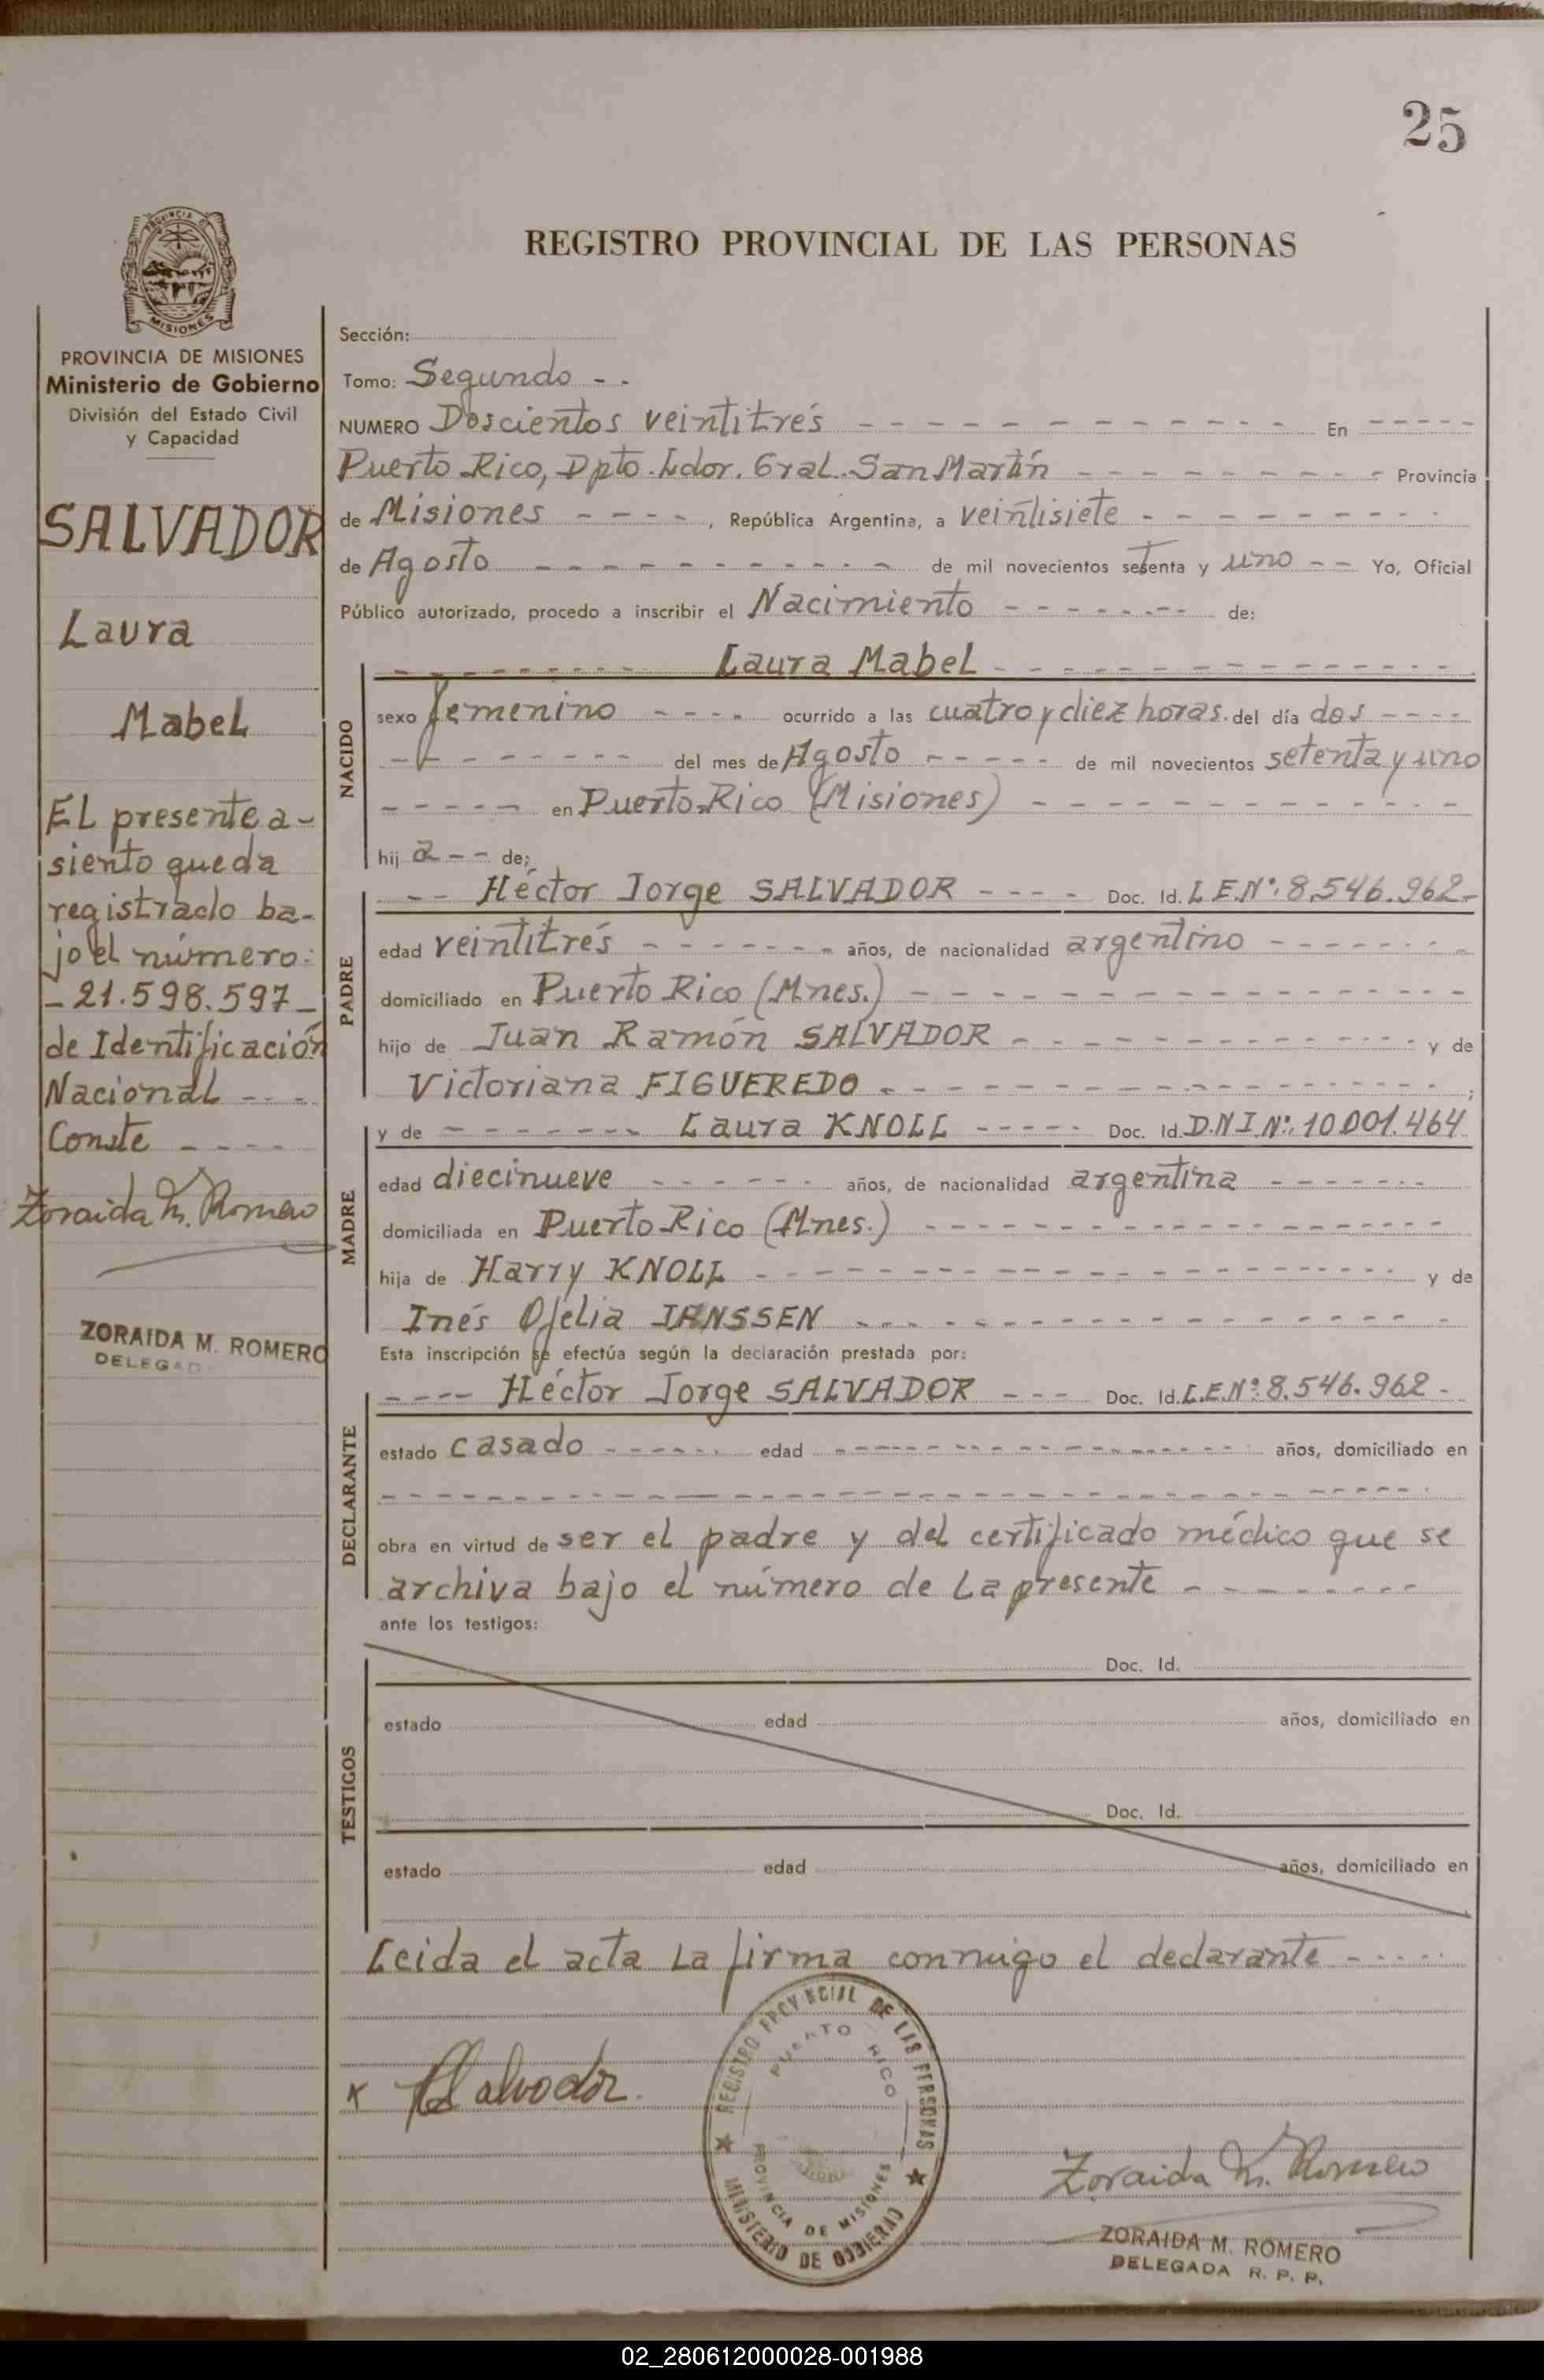 25
PROVINCIA DE
MISIONES
PROVINCIA DE MISIONES
Ministerio de Gobierno
División del Estado Civil
y Capacidad
SALVADOR
Laura
Mabel
El presente a-
siento queda
registrado ba-
jo el número:
- 21.598.597 -
de Identificación
Nacional - - -
Conste - - - -
Zoraida M. Romero
ZORAIDA M. ROMERO
DELEGAD
REGISTRO PROVINCIAL DE LAS PERSONAS
Sección:
Tomo: Segundo - -
NUMERO Doscientos veintitrés - - - - - En - - - - -
Puerto Rico, Dpto. Ldor. Gral. San Martín - - - - - Provincia
de Misiones - - - -, República Argentina, a veintisiete - - - - -
de Agosto - - - - - de mil novecientos setenta y uno - - Yo, Oficial
Público autorizado, procedo a inscribir el Nacimiento - - - - - de:
- - - - - Laura Mabel - - - - -
NACIDO
sexo femenino - - - - ocurrido a las cuatro y diez horas. del día dos - - - -
- - - - - del mes de Agosto - - - - - de mil novecientos setenta y uno
- - - - - en Puerto Rico (Misiones) - - - - -
hij a - - de:
- - Héctor Jorge SALVADOR - - - - Doc. Id. L.E.Nº: 8.546.962-
PADRE
edad veintitrés - - - - - años, de nacionalidad argentino - - - - -
domiciliado en Puerto Rico (Mnes.) - - - - -
hijo de Juan Ramón SALVADOR - - - - - y de
Victoriana FIGUEREDO - - - - - ;
y de - - - - - Laura KNOLL - - - - - Doc. Id. D.N.I.Nº: 10.001.464
MADRE
edad diecinueve - - - - - años, de nacionalidad argentina - - - - -
domiciliada en Puerto Rico (Mnes.) - - - - -
hija de Harry KNOLL - - - - - y de
Inés Ofelia JANSSEN - - - - -
Esta inscripción se efectúa según la declaración prestada por:
- - - - Héctor Jorge SALVADOR - - - Doc. Id. L.E.Nº: 8.546.962 -
DECLARANTE
estado casado - - - - - edad - - - - - años, domiciliado en
- - - - -
obra en virtud de ser el padre y del certificado médico que se
archiva bajo el número de la presente - - - - -
ante los testigos:
Doc. Id.
TESTIGOS
estado edad años, domiciliado en
Doc. Id.
estado edad años, domiciliado en
Leida el acta la firma conmigo el declarante - - - - -
x HSalvador.
REGISTRO PROVINCIAL DE LAS PERSONAS
PUERTO RICO
PROVINCIA DE MISIONES
MINISTERIO DE GOBIERNO
Zoraida M. Romero
ZORAIDA M. ROMERO
DELEGADA R. P. P.
02_280612000028-001988